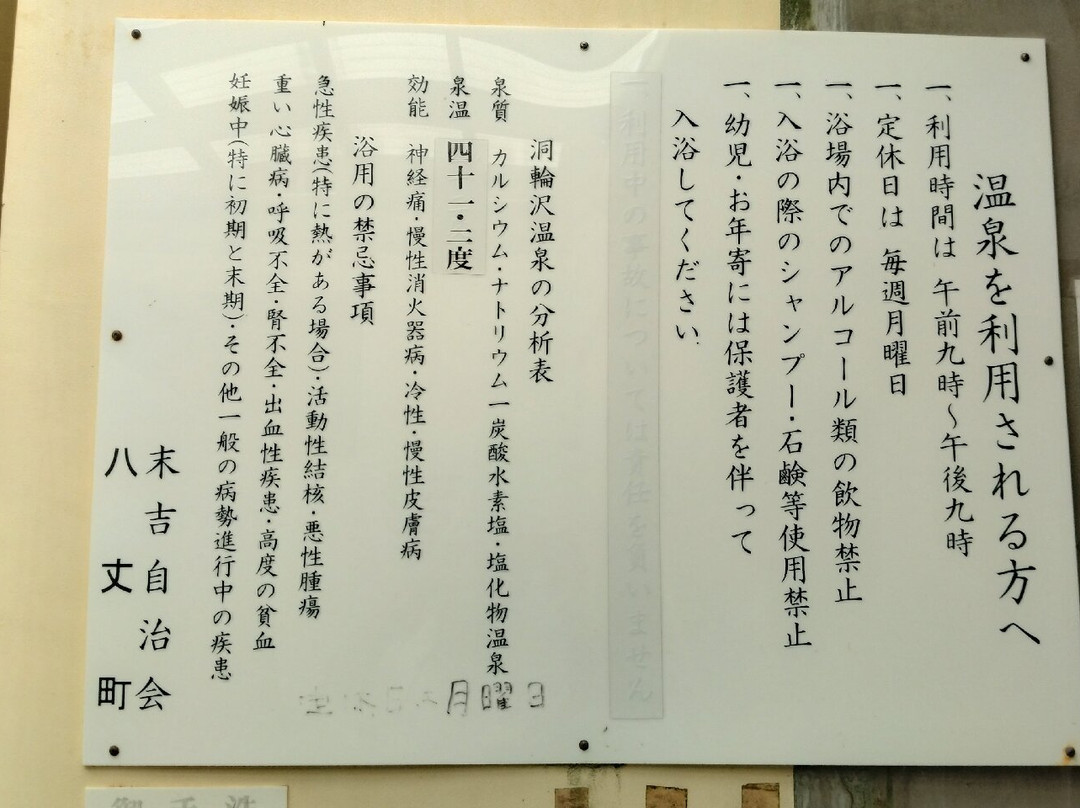 温泉を利用される方へ
一、利用時間は 午前九時~午後九時
一、定休日は 毎週月曜日
一、浴場内でのアルコール類の飲物禁止
一、入浴の際のシャンプー・石鹸等使用禁止
一、幼児・お年寄には保護者を伴って
入浴してください
一、利用中の事故については責任を負いません
洞輪沢温泉の分析表
泉質 カルシウム・ナトリウム一炭酸水素塩・塩化物温泉
泉温 四十一・二度
効能 神経痛・慢性消火器病・冷性・慢性皮膚病
浴用の禁忌事項
急性疾患(特に熱がある場合)・活動性結核・悪性腫瘍
重い心臓病・呼吸不全・腎不全・出血性疾患・高度の貧血
妊娠中(特に初期と末期)・その他一般の病勢進行中の疾患
末吉自治会
八丈町
月曜日